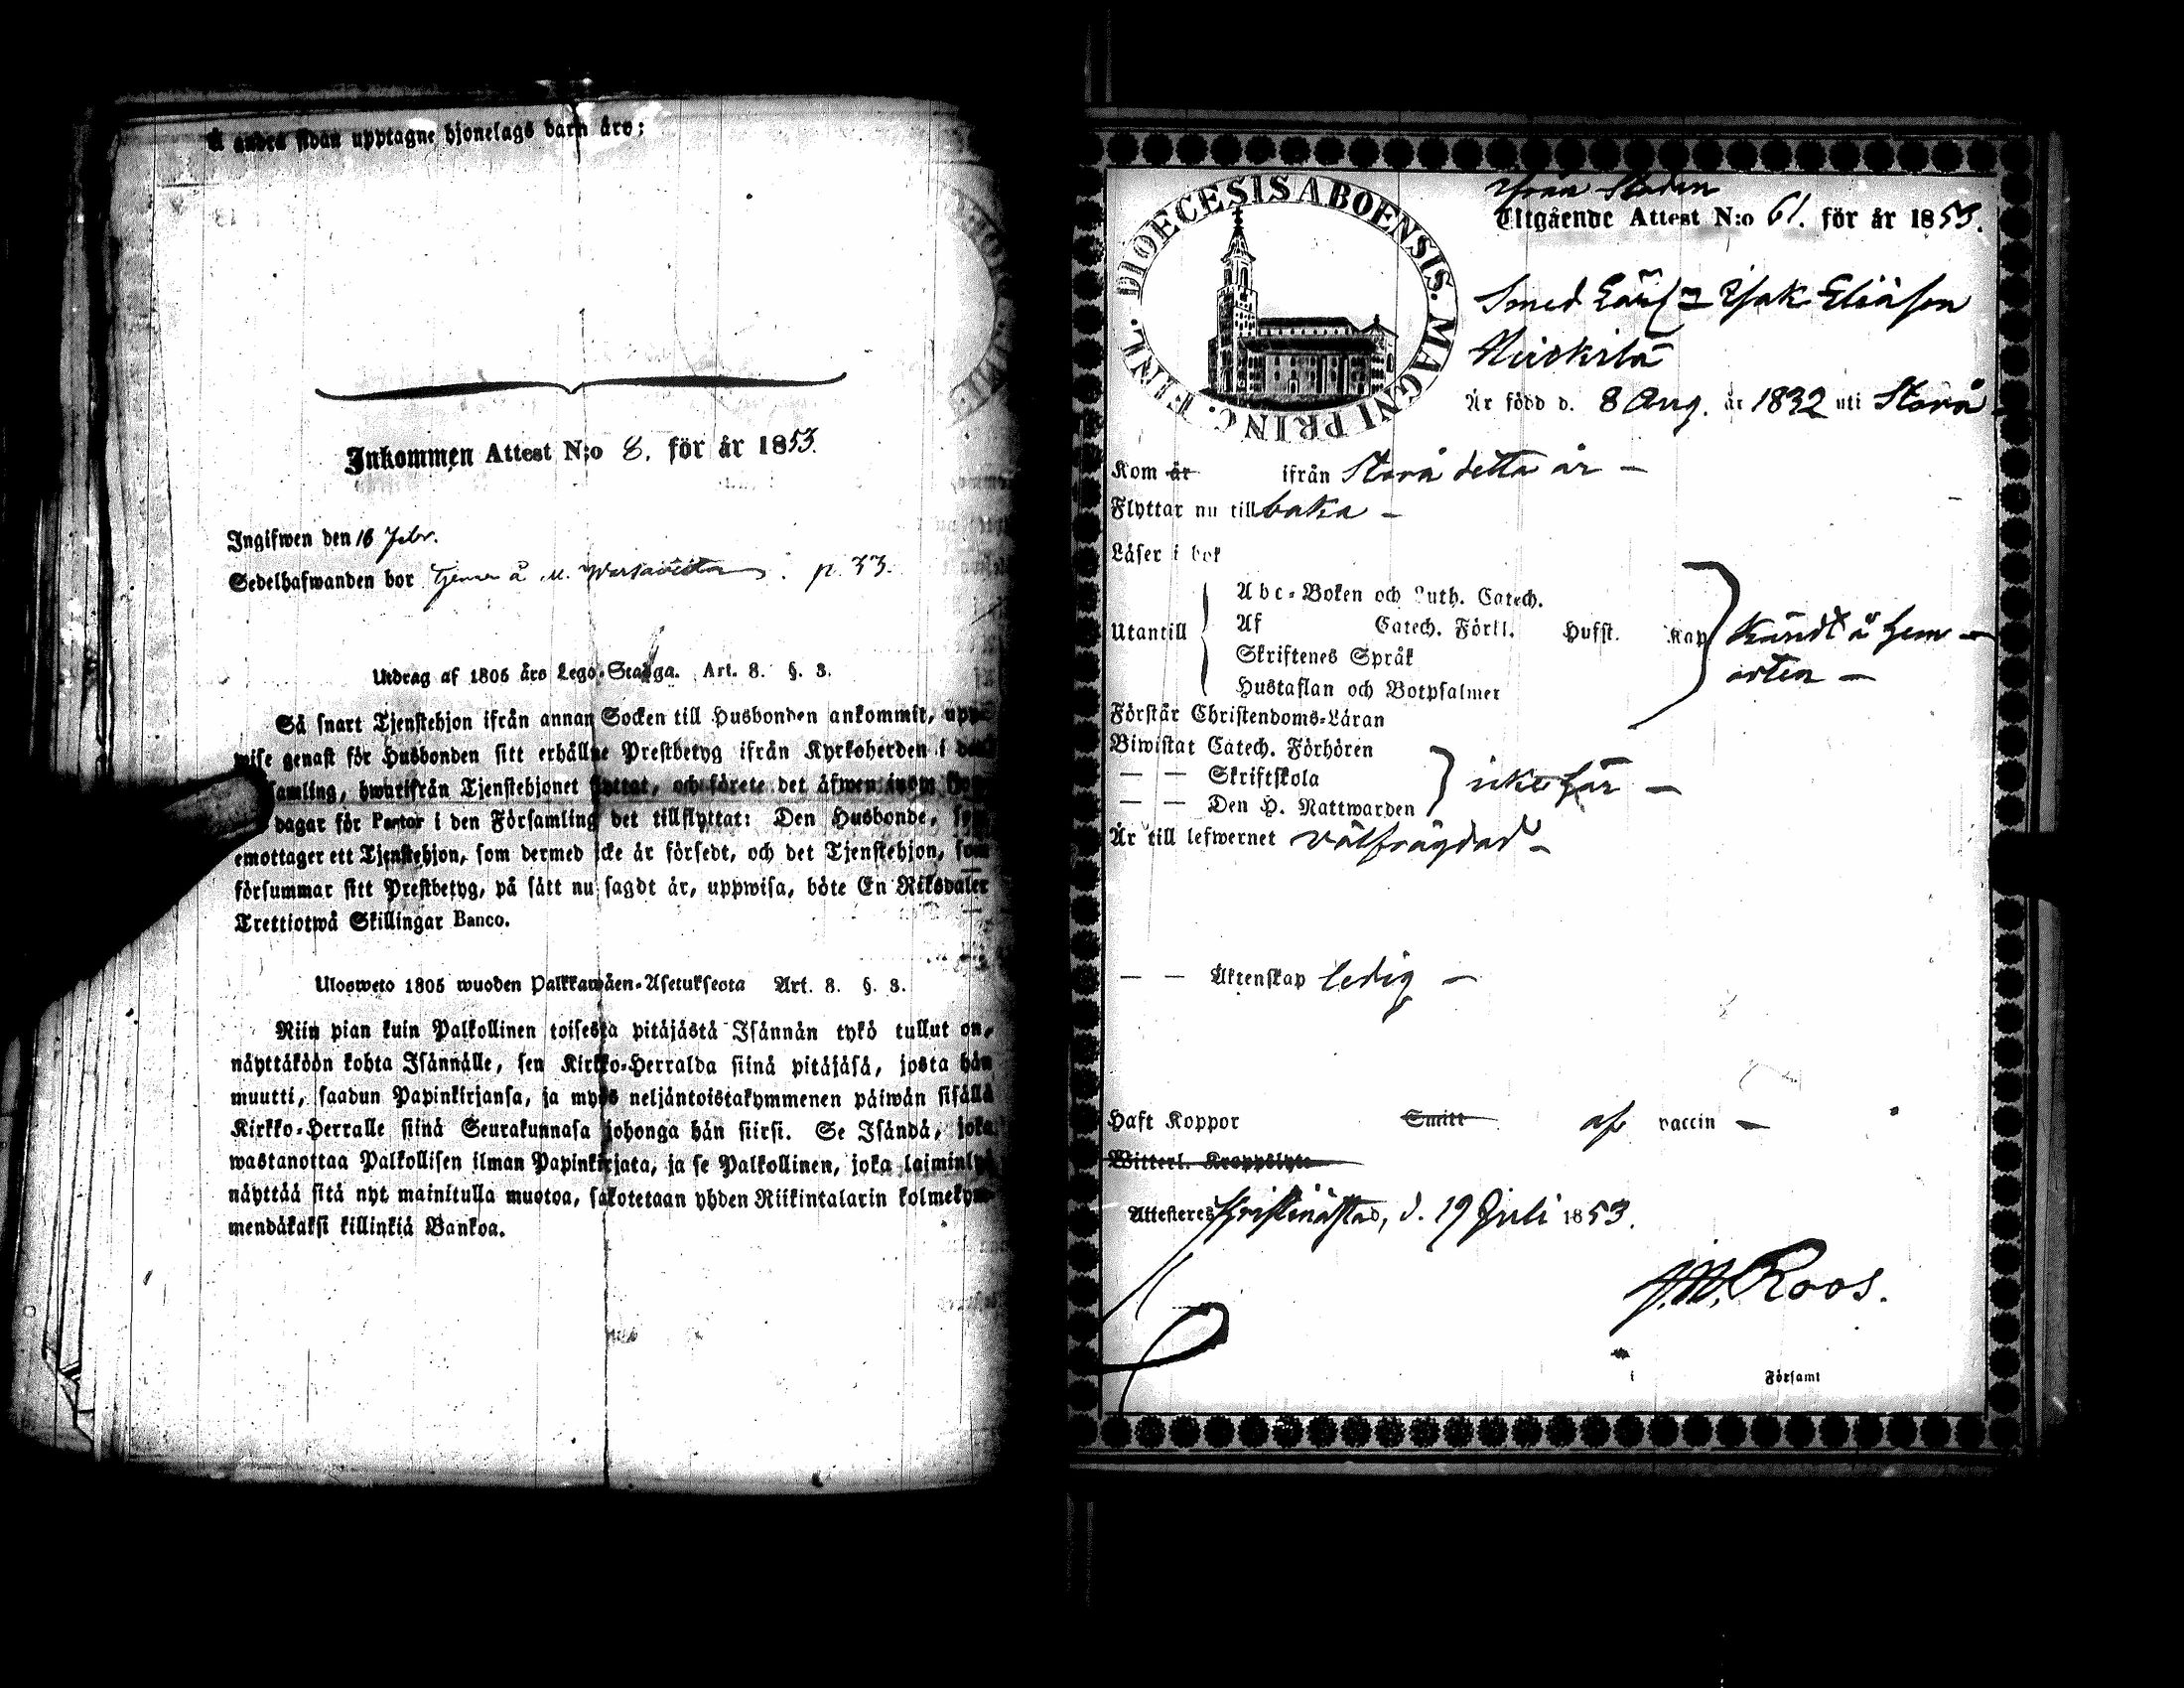 Å andra sidan upptagne hjonelags barn äro:
Inkommen Attest N:o 8. för år 1853.
Ingifwen den 16 Febr.
Sedelhafwanden bor tjenar å p. 33.
Utdrag af 1805 års Lego-Stadga. Art. 8. §. 3.
Så snart Tjenstehjon ifrån annan Socken till Husbonden ankommit, upp-
wise genast för Husbonden sitt erhållne Prestbetyg ifrån Kyrkoherden i den
samling, hwarifrån Tjenstehjonet flyttat, och förete det äfwen inom
dagar för Pastor i den Församling det tillflyttat: Den Husbonde, som
emottager ett Tjenstehjon, som dermed icke är försedt, och det Tjenstehjon, som
försummar sitt Prestbetyg, på sätt nu sagdt är, uppwisa, böte En Riksdaler
Trettiotwå Skillingar Banco.
Ulosweto 1805 wuoden Palkkawäen-Asetuksesta Art. 8. §. 3.
Niin pian kuin Palkollinen toisesta pitäjästä Isännän tykö tullut on,
näyttäköön kohta Isännälle, sen Kirkko-Herralda siinä pitäjäsä, josta hän
muutti, saadun Papinkirjansa, ja myös neljäntoistakymmenen päiwän sisällä
Kirkko-Herralle siinä Seurakunnasa johonga hän siirsi. Se Isändä, joka
wastanottaa Palkollisen ilman Papinkirjata, ja se Palkollinen, joka laiminlyö
näyttää sitä nyt mainitulla muotoa, sakotetaan yhden Riikintalarin kolmekym-
mendäkaksi killinkiä Bankoa.
DIOECESIS ABOENSIS. MAGNI PRINC. FINL.
Ifrån Staden
Utgående Attest N:o 61. för år 1853.
Smed Lärl Isak Eliasson
Är född d. 8 Aug. år 1832 uti Storå
Kom år ifrån Storå detta år —
Flyttar nu till baka —
Läser i bok
Abc-Boken och Luth. Catech.
Utantill Af Catech. Förkl. Husft. Kap. kändt å hem —
Skriftenes Språk orten —
Hustaflan och Botpsalmer
Förstår Christendoms-Läran
Biwistat Catech. Förhören
— — Skriftskola icke här —
— — Den H. Nattwarden
Är till lefwernet välfrägdad —
— — Äktenskap ledig —
Haft Koppor Smitt af vaccin —
Witterl. Kroppslyte
Attesteres Kristinæstad, d. 19 Juli 1853.
J.W. Roos.
i Församl